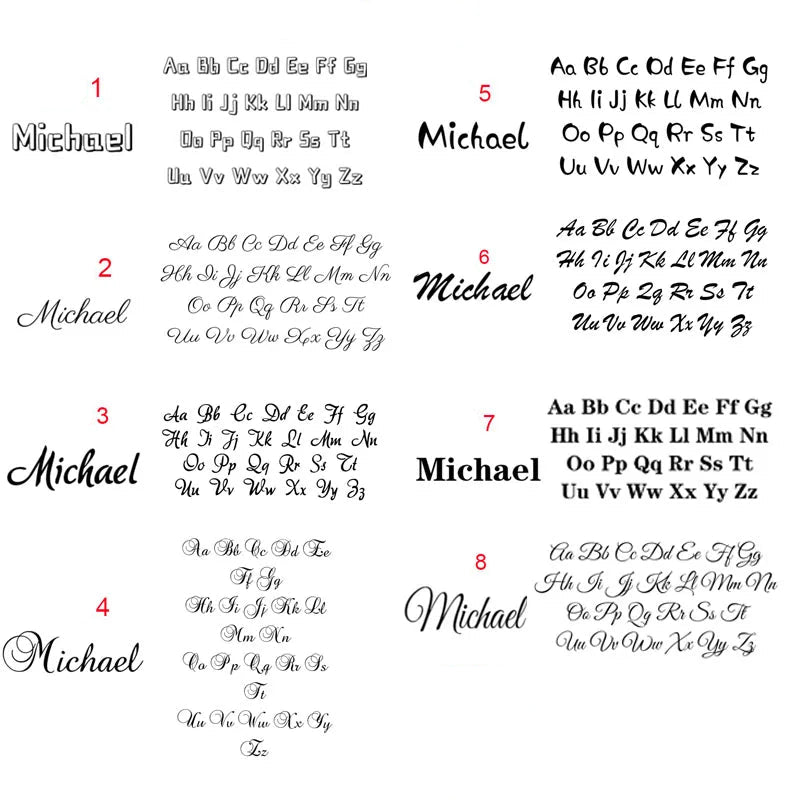 1
Michael
Aa Bb Cc Dd Ee Ff Gg
Hh Ii Jj Kk Ll Mm Nn
Oo Pp Qq Rr Ss Tt
Uu Vv Ww Xx Yy Zz
2
Michael
Aa Bb Cc Dd Ee Ff Gg
Hh Ii Jj Kk Ll Mm Nn
Oo Pp Qq Rr Ss Tt
Uu Vv Ww Xx Yy Zz
3
Michael
Aa Bb Cc Dd Ee Ff Gg
Hh Ii Jj Kk Ll Mm Nn
Oo Pp Qq Rr Ss Tt
Uu Vv Ww Xx Yy Zz
4
Michael
Aa Bb Cc Dd Ee
Ff Gg
Hh Ii Jj Kk Ll
Mm Nn
Oo Pp Qq Rr Ss
Tt
Uu Vv Ww Xx Yy
Zz
5
Michael
Aa Bb Cc Dd Ee Ff Gg
Hh Ii Jj Kk Ll Mm Nn
Oo Pp Qq Rr Ss Tt
Uu Vv Ww Xx Yy Zz
6
Michael
Aa Bb Cc Dd Ee Ff Gg
Hh Ii Jj Kk Ll Mm Nn
Oo Pp Qq Rr Ss Tt
Uu Vv Ww Xx Yy Zz
7
Michael
Aa Bb Cc Dd Ee Ff Gg
Hh Ii Jj Kk Ll Mm Nn
Oo Pp Qq Rr Ss Tt
Uu Vv Ww Xx Yy Zz
8
Michael
Aa Bb Cc Dd Ee Ff Gg
Hh Ii Jj Kk Ll Mm Nn
Oo Pp Qq Rr Ss Tt
Uu Vv Ww Xx Yy Zz